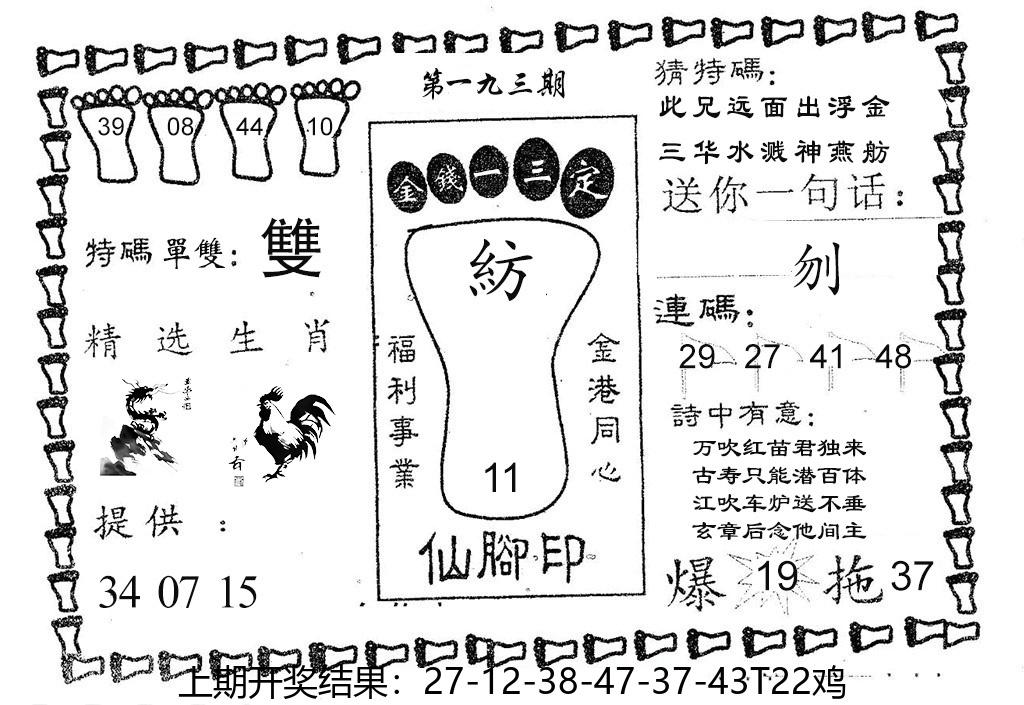 第一九三期
39 08 44 10
特碼單雙：雙
精选生肖
提供：
34 07 15
金錢一三定
紡
福利事業
金港同心
11
仙腳印
猜特碼：
此兄远面出浮金
三华水溅神燕舫
送你一句话：
刎
連碼：
29 27 41 48
詩中有意：
万吹红苗君独来
古寿只能潜百体
江吹车炉送不垂
玄章后念他间主
爆 19 拖 37
上期开奖结果：27-12-38-47-37-43T22鸡